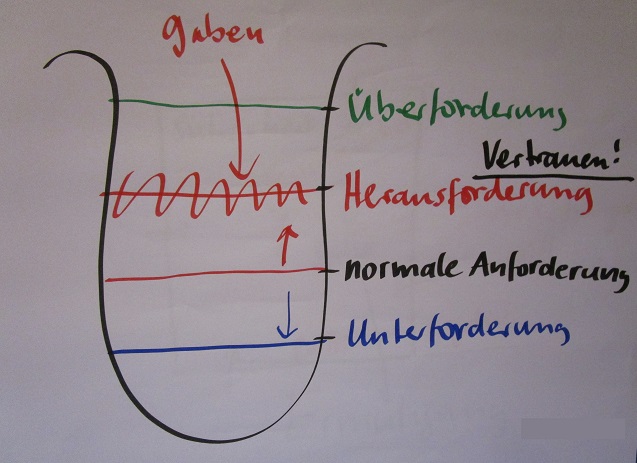 Gaben
Überforderung
Vertrauen!
Herausforderung
normale Anforderung
Unterforderung